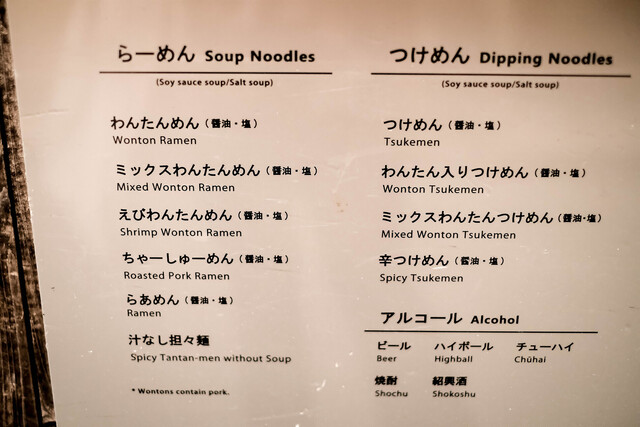 らーめん Soup Noodles
(Soy sauce soup/Salt soup)
わんたんめん（醤油・塩）
Wonton Ramen
ミックスわんたんめん（醤油・塩）
Mixed Wonton Ramen
えびわんたんめん（醤油・塩）
Shrimp Wonton Ramen
ちゃーしゅーめん（醤油・塩）
Roasted Pork Ramen
らあめん（醤油・塩）
Ramen
汁なし担々麺
Spicy Tantan-men without Soup
* Wontons contain pork.
つけめん Dipping Noodles
(Soy sauce soup/Salt soup)
つけめん（醤油・塩）
Tsukemen
わんたん入りつけめん（醤油・塩）
Wonton Tsukemen
ミックスわんたんつけめん（醤油・塩）
Mixed Wonton Tsukemen
辛つけめん（醤油・塩）
Spicy Tsukemen
アルコール Alcohol
ビール ハイボール チューハイ
Beer Highball Chūhai
焼酎 紹興酒
Shochu Shokoshu